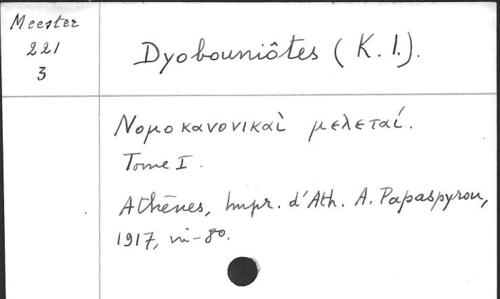 Meester
221
3
Dyobouniôtes (K. I.).
Νομοκανονικαὶ μελεταί.
Tome I.
Athènes, Impr. d'Ath. A. Papaspyrou,
1917, in-8º.